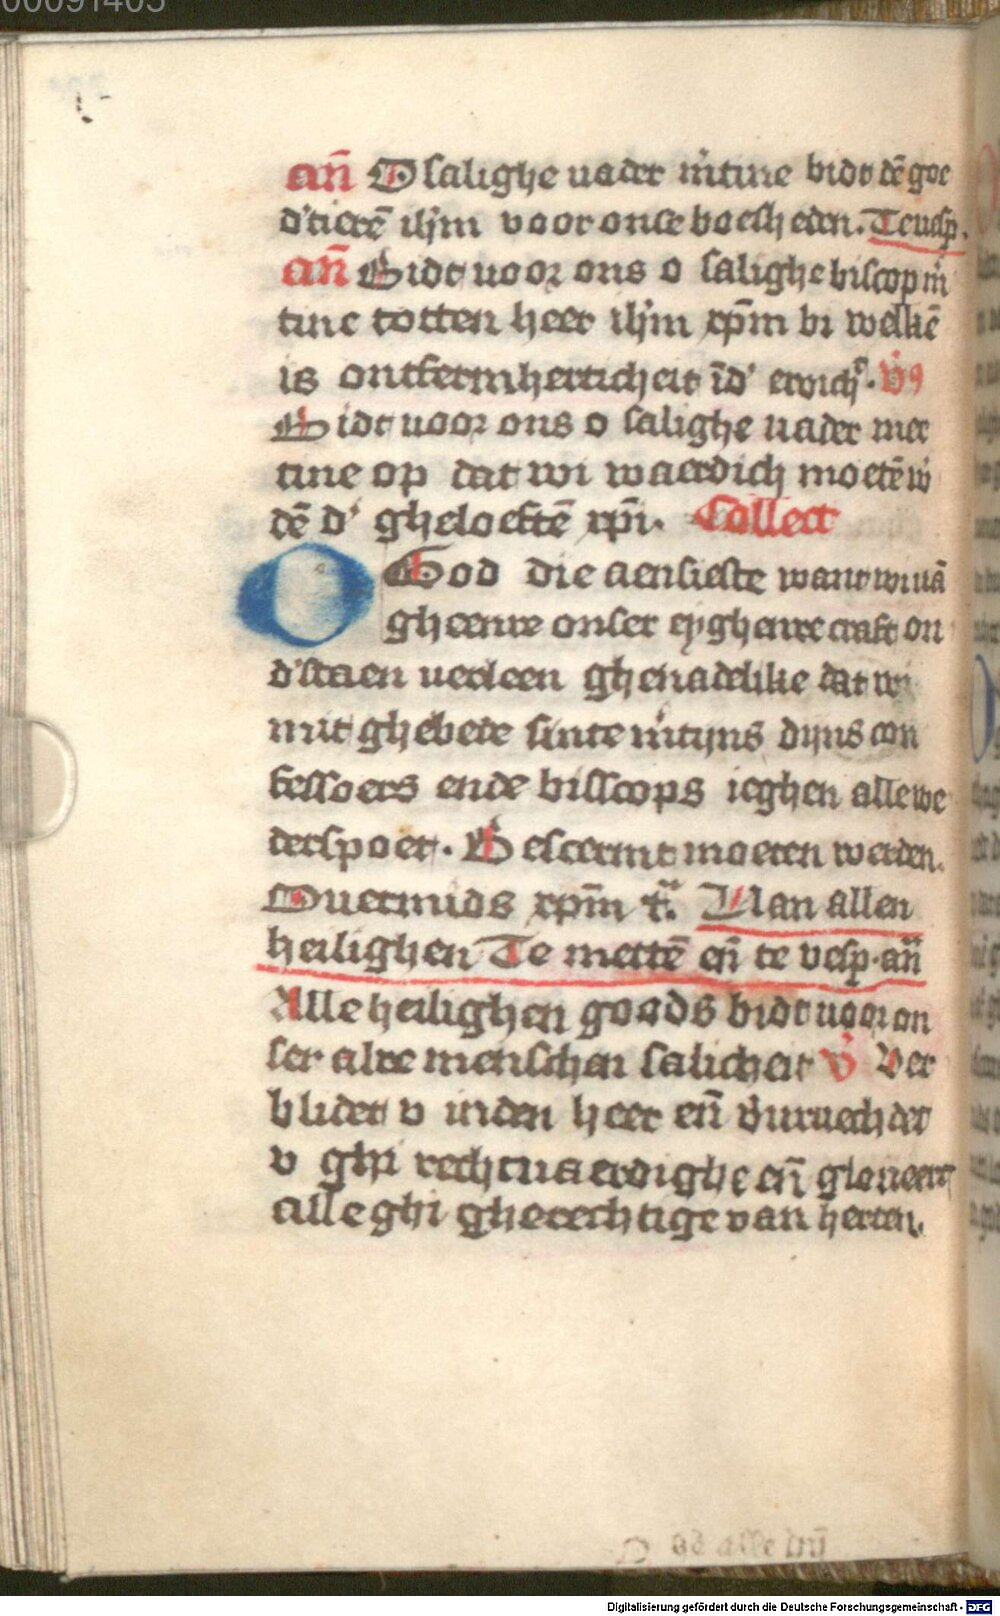 00091405
an̄ O salighe uader m̕tine bidt dē goe
d'tierē ihm̄ voor onse boesheden. Te uesp.
an̄ Bidt uoor ons o salighe biscop m̕
tine totten heer ihm̄ xp̄m bi welkē
is ontfermherticheit īd' ewich. v̕s
Bidt uoor ons o salighe uader mer
tine op dat wi waerdich moetē w̕
dē d' gheloeftē xp̄i. Collect
O God die aensieste want wi uā
gheenre onser eygheure craft on
d'staen uerleen ghenadelike dat wi
mit ghebede sinte m̕tijns dijns con
fessoers ende bisscops ieghen alle we
derspoet. Bescermt moeten werden.
Ouermids xp̄m &c. Uan allen
heilighen Te mettē en̄ te vesp. an̄
Alle heilighen goods bidt uoor on
ser alre menschen salicheit v̕ Ver
blidet v inden heer en̄ v̕uruechdet
v ghi rechtuaerdighe en̄ glorieert
alle ghi gherechtige van herten.
Digitalisierung gefördert durch die Deutsche Forschungsgemeinschaft - DFG